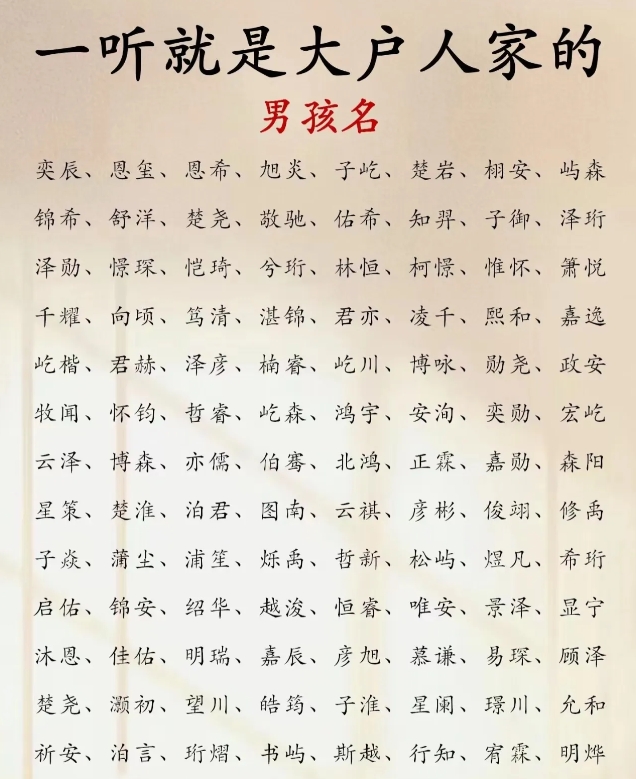 一听就是大户人家的
男孩名
奕辰、恩玺、恩希、旭炎、子屹、楚岩、栩安、屿森
锦希、舒洋、楚尧、敬驰、佑希、知羿、子御、泽珩
泽勋、憬琛、恺琦、兮珩、林恒、柯憬、惟怀、箫悦
千耀、向顷、笃清、湛锦、君亦、凌千、熙和、嘉逸
屹楷、君赫、泽彦、楠睿、屹川、博咏、勋尧、政安
牧闻、怀钧、哲睿、屹森、鸿宇、安洵、奕勋、宏屹
云泽、博森、亦儒、伯骞、北鸿、正霖、嘉勋、森阳
星策、楚淮、泊君、图南、云祺、彦彬、俊翊、修禹
子焱、蒲尘、浦笙、烁禹、哲新、松屿、煜凡、希珩
启佑、锦安、绍华、越浚、恒睿、唯安、景泽、显宁
沐恩、佳佑、明瑞、嘉辰、彦旭、慕谦、易琛、顾泽
楚尧、灏初、望川、皓筠、子淮、星阑、璟川、允和
祈安、泊言、珩熠、书屿、斯越、行知、宥霖、明烨